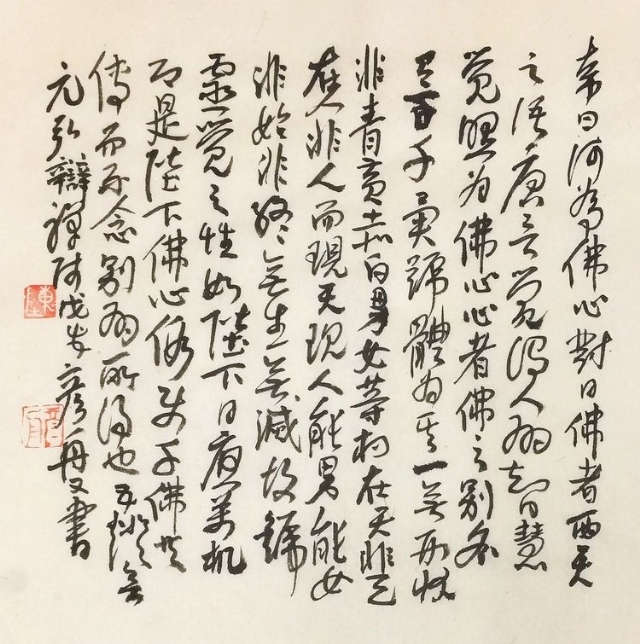 帝曰何為佛心對曰佛者西天
之語唐言覺謂人有智慧
覺照為佛心心者佛之別名
有百千異號體唯其一無形狀
非青黃赤白男女等相在天非天
在人非人而現天現人能男能女
非始非終無生無滅故號
靈覺之性如陛下日應萬機
即是陛下佛心假使千佛共
傳而不念別有所得也
弘辯禪師 書